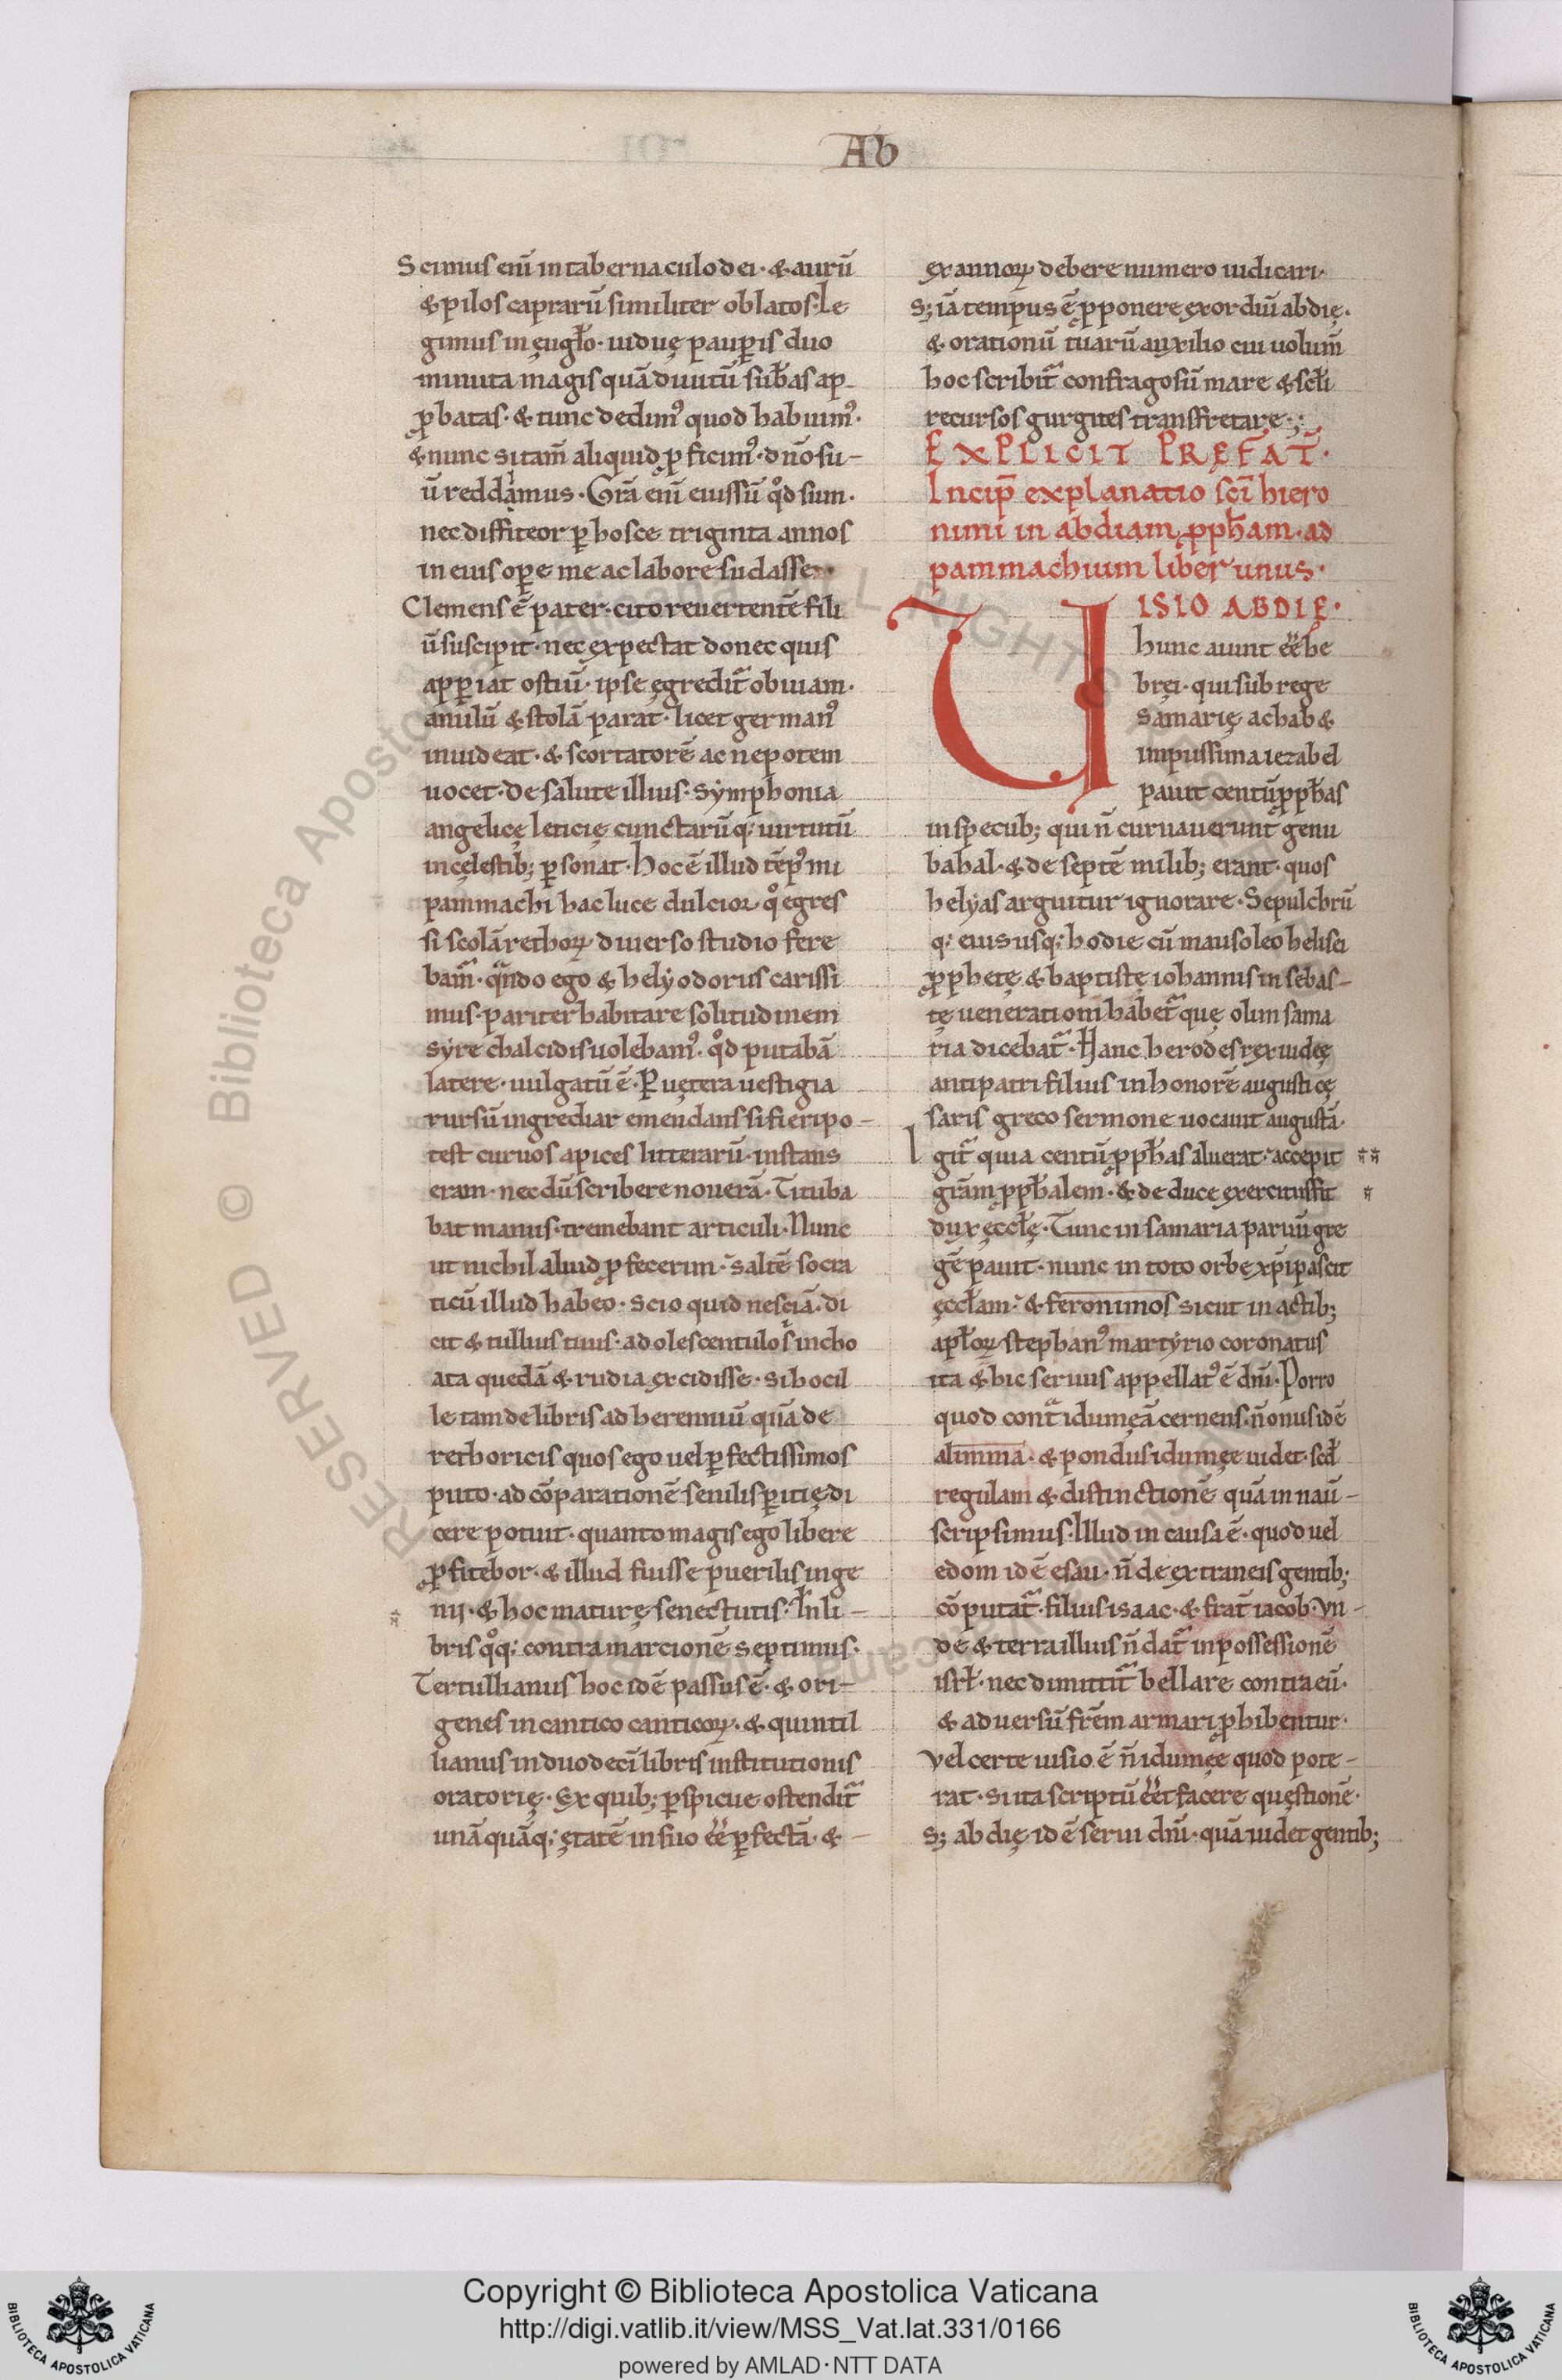 Ab
Scimus eni&#772; in tabernaculo dei · & aurū
& pilos caprarū similiter oblatos · Le
gimus in euglo · uiduę pauꝑis duo
minuta magis quā diuitū sub̄as ap
ꝓbatas · & tunc dedimꝰ quod habuimꝰ ·
& nunc si tam̄ aliquid ꝓficimꝰ · dn̄o su–
ū reddamus · Grā eni&#772; eiussū qd̊ sum ·
nec diffiteor ꝑ hosce triginta annos
in eius oꝑe me ac labore sudasse ·
Clemens ē pater · cito reuertentē fili
ū suscipit · nec expectat donec quis
apꝑiat ostiū · ipse egredit᷑ obuiam ·
anulū & stolā parat · licet germanꝰ
inuideat · & scortatorē ac nepotem
uocet · de salute illius · symphonia
angelicę leticię cunctarūq; uirtutū
in celestib; ꝑsonat · hoc ē illud tēpꝰ mi
pammachi hac luce dulcior qͦ egres
si scolā rethoꝝ diuerso studio fere
bam᷑ · qͣndo ego & helyodorus carissi
mus · pariter habitare solitudinem
syre chalcidis uolebamꝰ · qd̊ putabā
latere · uulgatū ē · ꝑ uetera uestigia
rursū ingrediar emendans si fieri po–
test curuos apices litterarū · instans
eram · necdū scribere nouerā · Tituba
bat manus · tremebant articuli · Nunc
ut nichil aliud ꝓfecerim · saltē socra
ticū illud habeo · scio quid nesciā · di
cit & tullius tuus · adolescentulo s incho
ata quedā & rudia excidisse · si hoc il
le tam de libris ad herenniū quā de
rethoricis quos ego uel ꝑfectissimos
puto · ad cōparationē senilis ꝑitię di
cere potuit · quanto magis ego libere
ꝓfitebor · & illud fuisse puerilis inge
nij · & hoc maturę senectutis · In li–
bris qͦq; contra marcionē septimus ·
Tertullianus hoc idē passus ē · & ori–
genes in cantico canticoꝝ · & quintil
lianus in duodeci&#772; libris institutionis
oratorię · Ex quib; ꝑspicue ostendit᷑
unā quāq; ętatē in suo ēē ꝑfectā · & –
ex annoꝝ debere numero iudicari ·
S; iā tempus ē ꝓponere exordiū abdię ·
& orationū tuarū auxilio cui uolum̄
hoc scribit᷑ confragosū mare & scłi
recursos gurgites transfretare ·;
EXPLICIT PREFAT̄ ·
Incip̄ explanatio sci&#772; hiero
nimi in abdiam ꝓph̄am · ad
pammachium liber unus ·
UISIO ABDIE ·
hunc aiunt ēē he
brei · qui sub rege
samarię achab &
impiissima iezabel
pauit centū ꝓph̄as
in specub; qui n̄ curuauerunt genu
bahal · & de septē milib; erant · quos
helyas arguitur ignorare · Sepulchrū
q; eius usq; hodie cū mausoleo helisei
ꝓphetę & baptistę iohannis in sebas–
tę uenerationi habet᷑ quę olim sama
ria dicebat᷑ · Hanc herodes rex iudeę
antipatri filius in honorē augusti cę
saris greco sermone uocauit augustā ·
Igit᷑ quia centū ꝓph̄as aluerat · accepit
grām ꝓph̄alem · & de duce exercitus fit
dux ęccłę · Tunc in samaria paruū gre
gē pauit · nunc in toto orbe xp̄i pascit
ęccłam · & feronimos sicut in actib;
apłoꝝ stephanꝰ martyrio coronatus
ita & hic seruus appellatꝰ ē dn̄i · Porro
quod contᷓ idumęā cernens · n̄ onus id ē
alimma · & pondus idumęe uidet · sed̄
regulam & distinctionē quā in naū–
scripsimus · Illud in causa ē · quod uel
edom id ē esau · n̄ de extraneis gentib;
cōputat᷑ · filius isaac · & frat᷑ iacob · Vn–
de & terra illius n̄ dat᷑ in possessionē
isrł · nec dimittit᷑ bellare contra eū ·
& aduersū frēm armari ꝓhibentur ·
Vel certe uisio ē n̄ idumęe quod pote–
rat · si ita scriptū ēēt facere questionē ·
S; abdię id ē serui dn̄i · quā uidet gentib;
RESERVED © Biblioteca Apostolica Vaticana
ALL RIGHTS
Copyright © Biblioteca Apostolica Vaticana
http://digi.vatlib.it/view/MSS_Vat.lat.331/0166
powered by AMLAD·NTT DATA
BIBLIOTECA APOSTOLICA VATICANA
BIBLIOTECA APOSTOLICA VATICANA